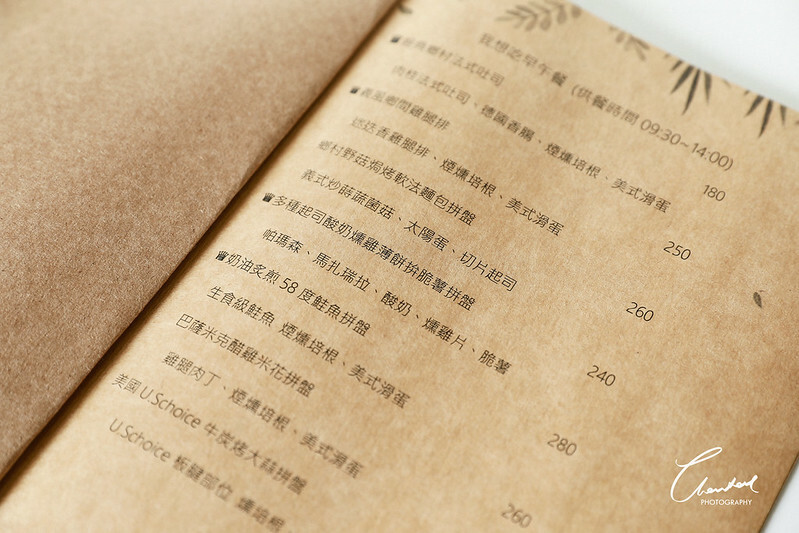 我想吃早午餐 (供餐時間 09:30~14:00)
經典鄉村法式吐司 180
肉桂法式吐司、德國香腸、煙燻培根、美式滑蛋
義風鄉間雞腿排 250
迷迭香雞腿排、煙燻培根、美式滑蛋
鄉村野菇焗烤軟法麵包拼盤 260
義式炒蒔蔬菌菇、太陽蛋、切片起司
多種起司酸奶燻雞薄餅拚脆薯拼盤 240
帕瑪森、馬扎瑞拉、酸奶、燻雞片、脆薯
奶油炙煎 58 度鮭魚拼盤 280
生食級鮭魚 煙燻培根、美式滑蛋
巴薩米克醋雞米花拼盤 260
雞腿肉丁、煙燻培根、美式滑蛋
美國 U.Schoice 牛炭烤大蒜拼盤
U.Schoice 板腱部位 燻培根、
PHOTOGRAPHY